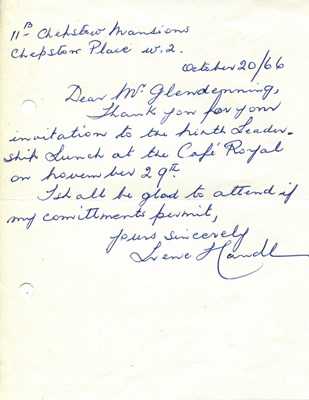 11B Chepstow Mansions
Chepstow Place W.2.
October 20/66
Dear Mr Glendenning,
Thank you for your
invitation to the ninth Leader-
ship Lunch at the Café Royal
on november 29th.
I shall be glad to attend if
my comittments permit,
yours sincerely
Irene Handl